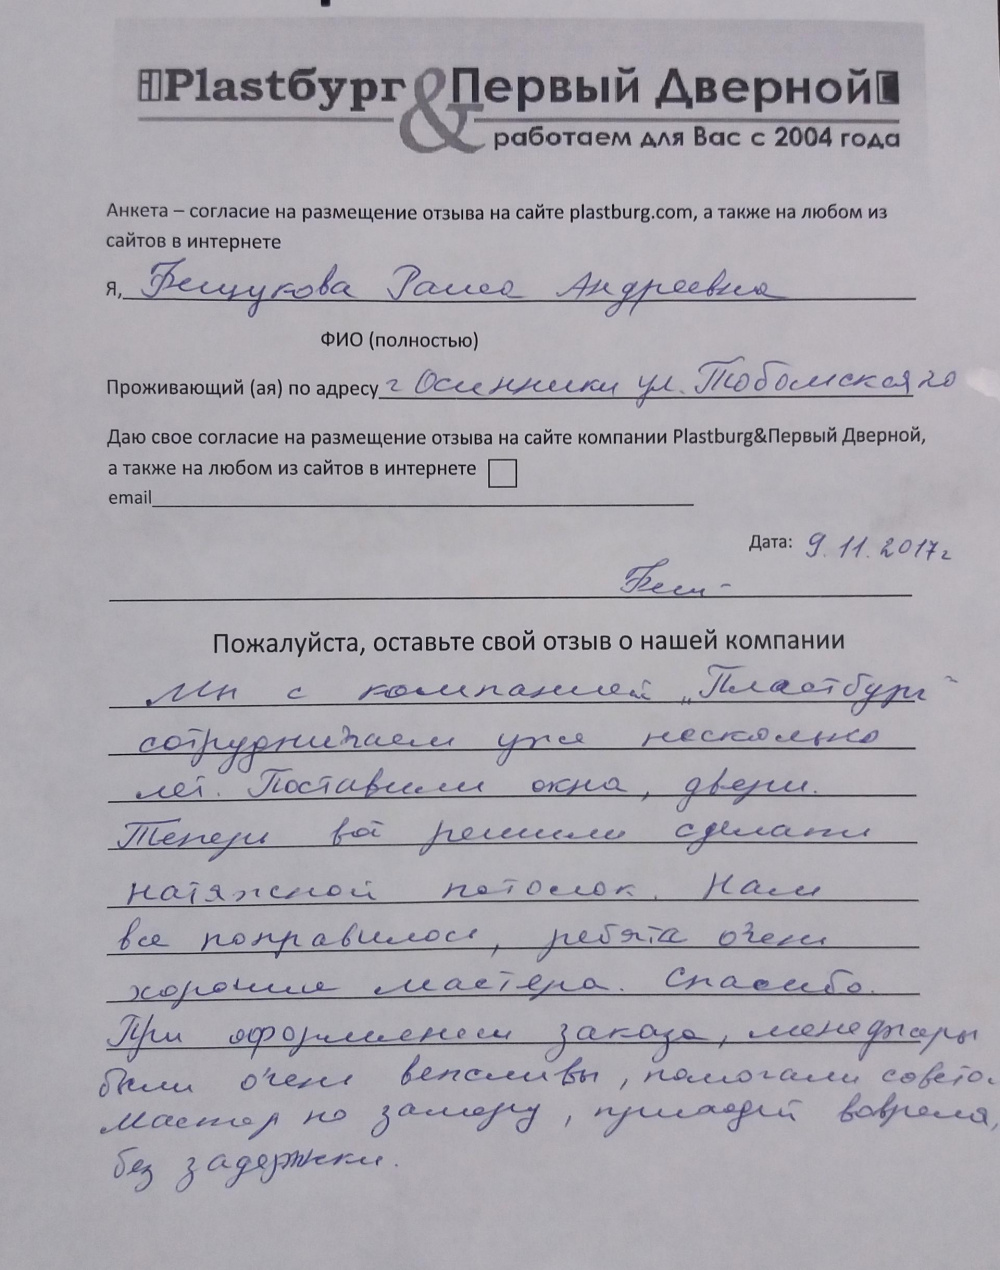 Plastбург & Первый Дверной
работаем для Вас с 2004 года
Анкета – согласие на размещение отзыва на сайте plastburg.com, а также на любом из
сайтов в интернете
Я, Фещукова Раиса Андреевна
ФИО (полностью)
Проживающий (ая) по адресу г Осинники ул. Тобольская 20
Даю свое согласие на размещение отзыва на сайте компании Plastburg&Первый Дверной,
а также на любом из сайтов в интернете
email
Дата: 9.11.2017г
Фещ-
Пожалуйста, оставьте свой отзыв о нашей компании
Мы с компанией „Пластбург"
сотрудничаем уже несколько
лет. Поставили окна, двери.
Теперь вот решили сделать
натяжной потолок. Нам
все понравилось, ребята очень
хорошие мастера. Спасибо.
При оформлении заказа, менеджеры
были очень вежливы, помогали совето
Мастер по замеру, приходит вовремя,
без задержки.